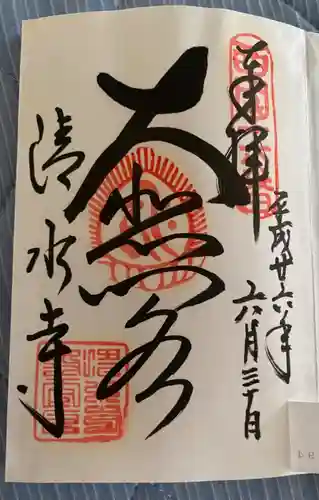 奉拝
平成廿六年
六月三十日
大悲閣
清水寺